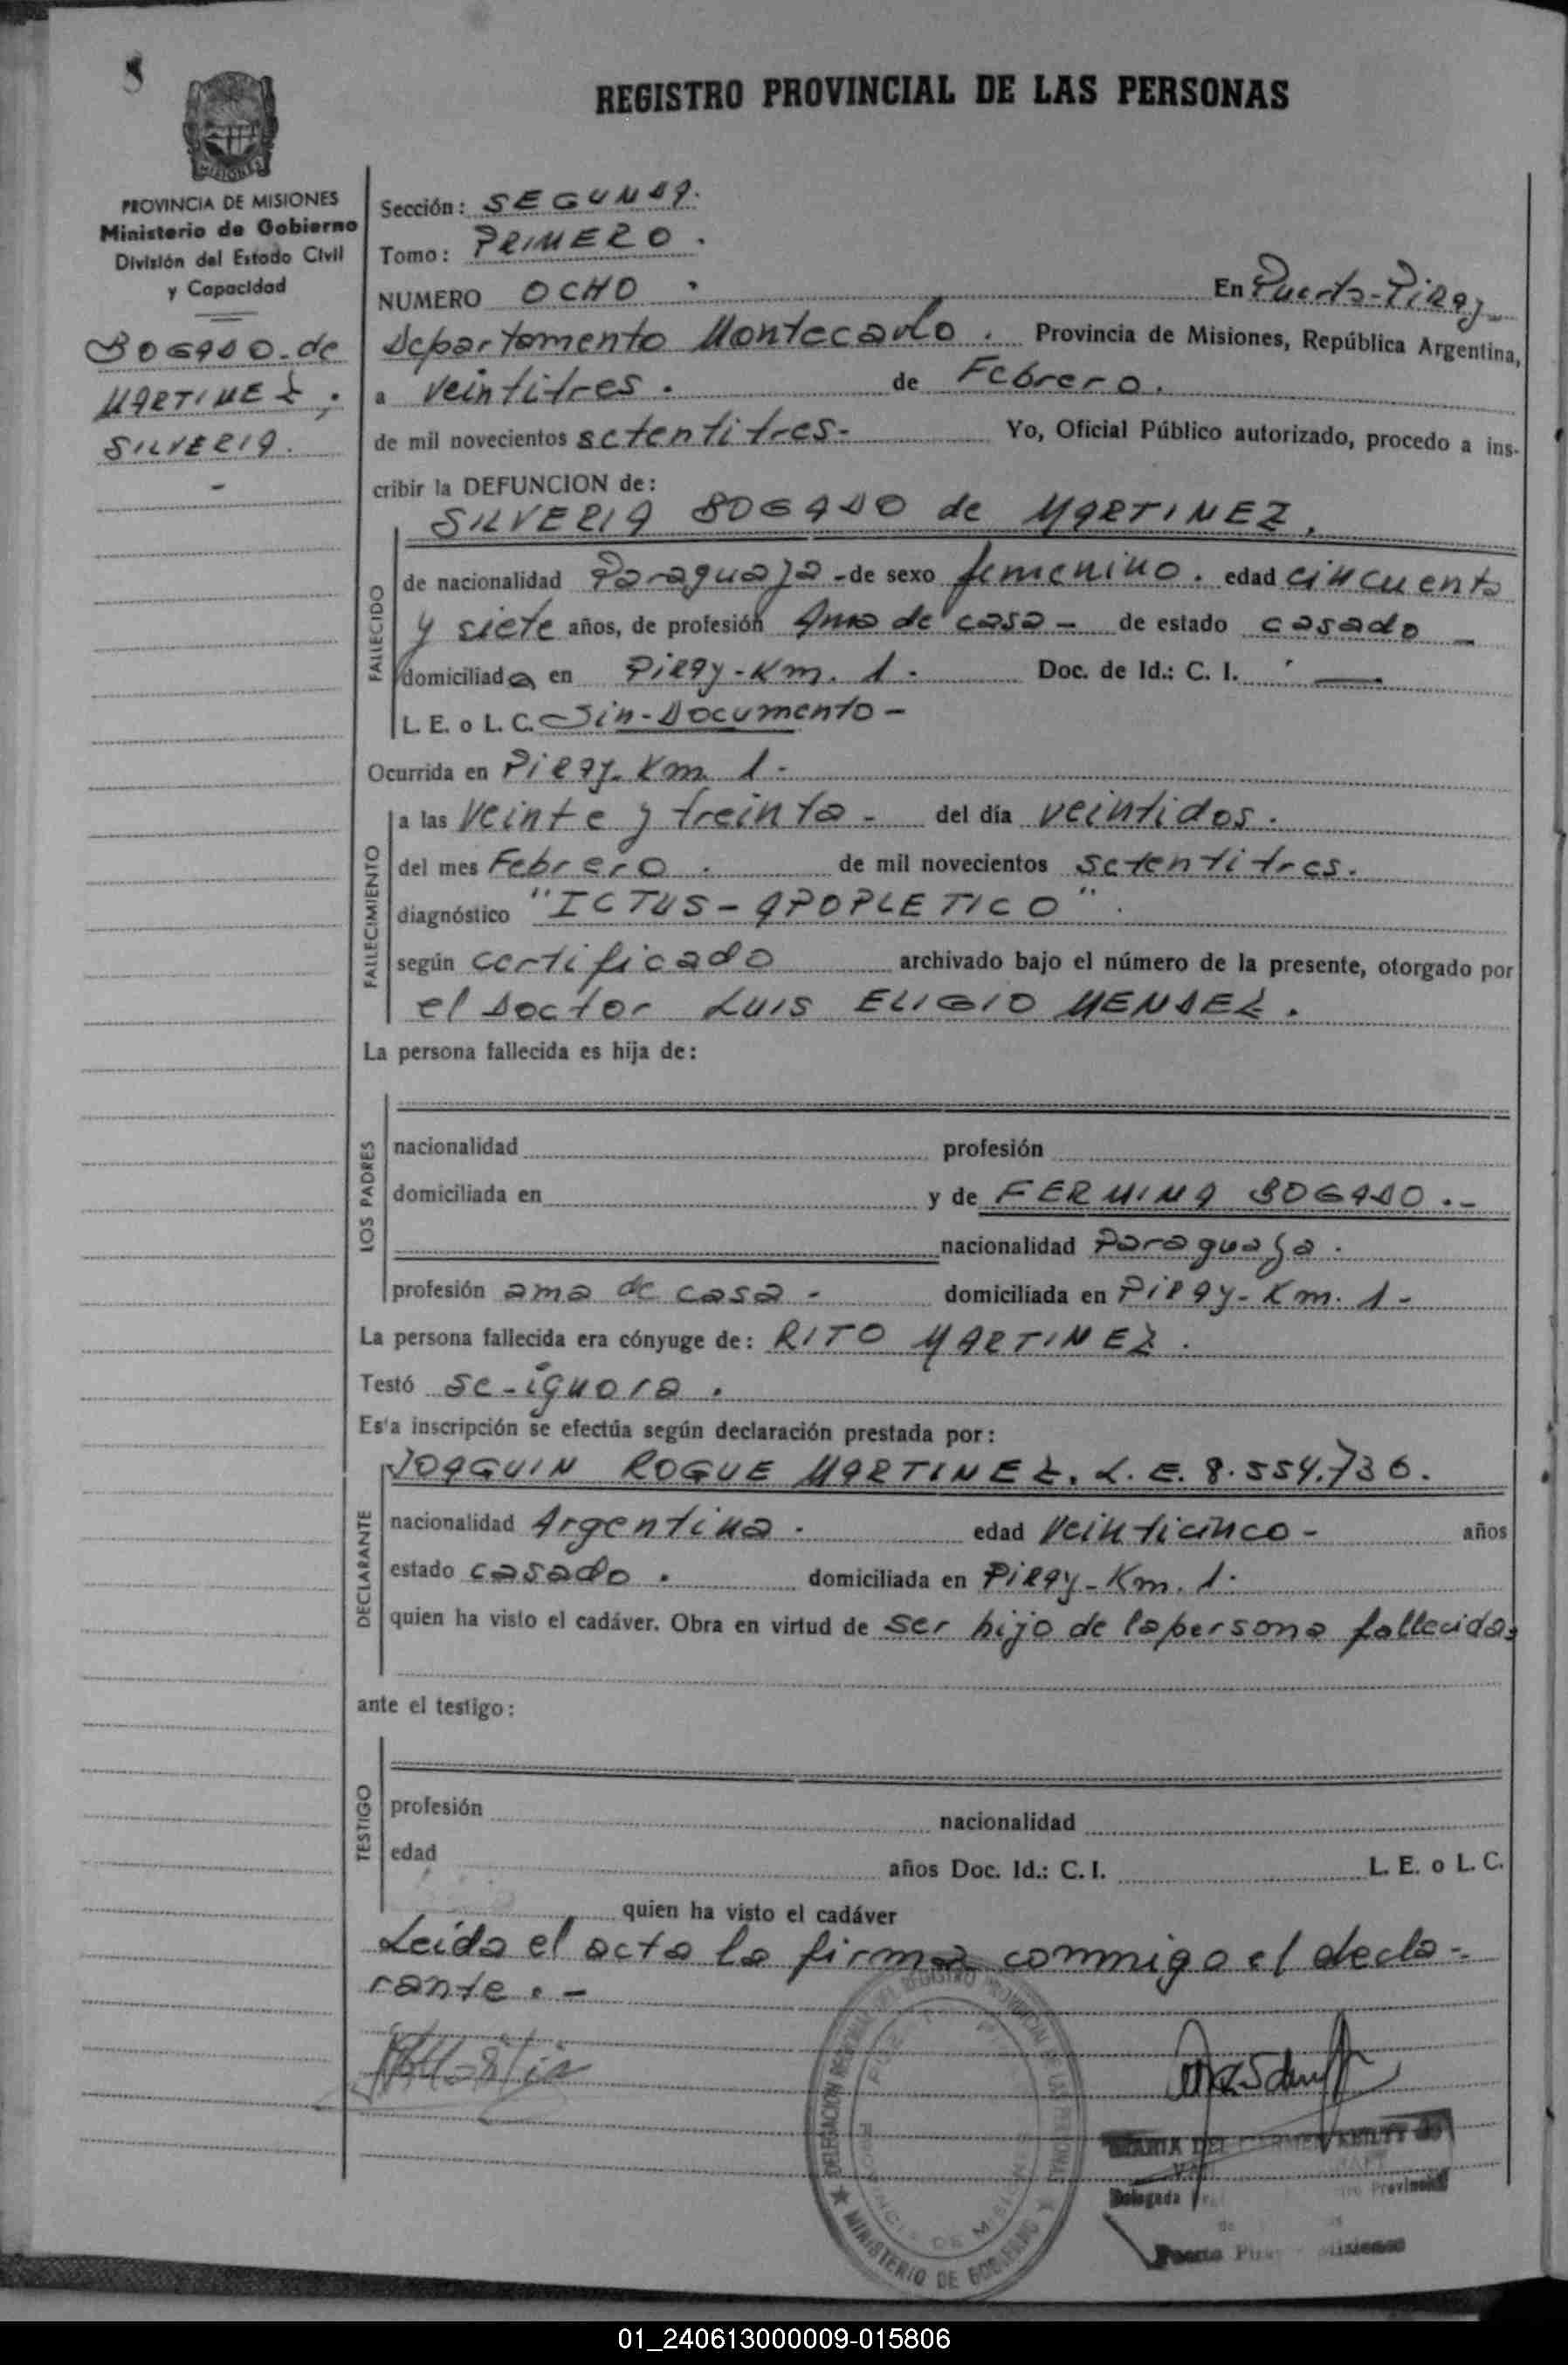 8
REGISTRO PROVINCIAL DE LAS PERSONAS
MISIONES
PROVINCIA DE MISIONES
Ministerio de Gobierno
División del Estado Civil
y Capacidad
BOGADO. de
MARTINEZ,
SILVERIA.
-
Sección: SEGUNDA.
Tomo: PRIMERO.
NUMERO OCHO. En Puerto-Piray-
Departamento Montecarlo. Provincia de Misiones, República Argentina,
a veintitres. de Febrero.
de mil novecientos setentitres.- Yo, Oficial Público autorizado, procedo a ins-
cribir la DEFUNCION de:
SILVERIA BOGADO de MARTINEZ.
FALLECIDO
de nacionalidad Paraguaya - de sexo femenino. edad cincuenta
y siete años, de profesión Ama de casa - de estado casado -
domiciliada en Piray-Km. 1. Doc. de Id.: C. I. —
L. E. o L. C. Sin-Documento -
Ocurrida en Piray. Km. 1.-
FALLECIMIENTO
a las veinte y treinta - del día veintidos.
del mes Febrero. de mil novecientos setentitres.
diagnóstico "ICTUS-APOPLETICO".
según certificado archivado bajo el número de la presente, otorgado por
el Doctor LUIS ELIGIO MENDEZ.
La persona fallecida es hija de:
LOS PADRES
nacionalidad profesión
domiciliada en y de FERMINA BOGADO.-
nacionalidad Paraguaya.
profesión ama de casa - domiciliada en Piray-Km. 1-
La persona fallecida era cónyuge de: RITO MARTINEZ.
Testó se-ignora.
Esta inscripción se efectúa según declaración prestada por:
DECLARANTE
JOAQUIN ROQUE MARTINEZ. L.E. 8.554.736.
nacionalidad Argentina. edad veinticinco- años
estado casado. domiciliada en Piray-Km. 1.
quien ha visto el cadáver. Obra en virtud de ser hijo de la persona fallecida,
ante el testigo:
TESTIGO
profesión nacionalidad
edad años Doc. Id.: C. I. L. E. o L. C.
quien ha visto el cadáver
Leida el acta la firma conmigo el decla-
rante.-
DELEGACION REGISTRO PROVINCIAL DE LAS PERSONAS
PROVINCIA DE MISIONES
★ MINISTERIO DE GOBIERNO ★
MARIA DEL CARMEN
Delegada Provincial
Puerto Misiones
01_240613000009-015806